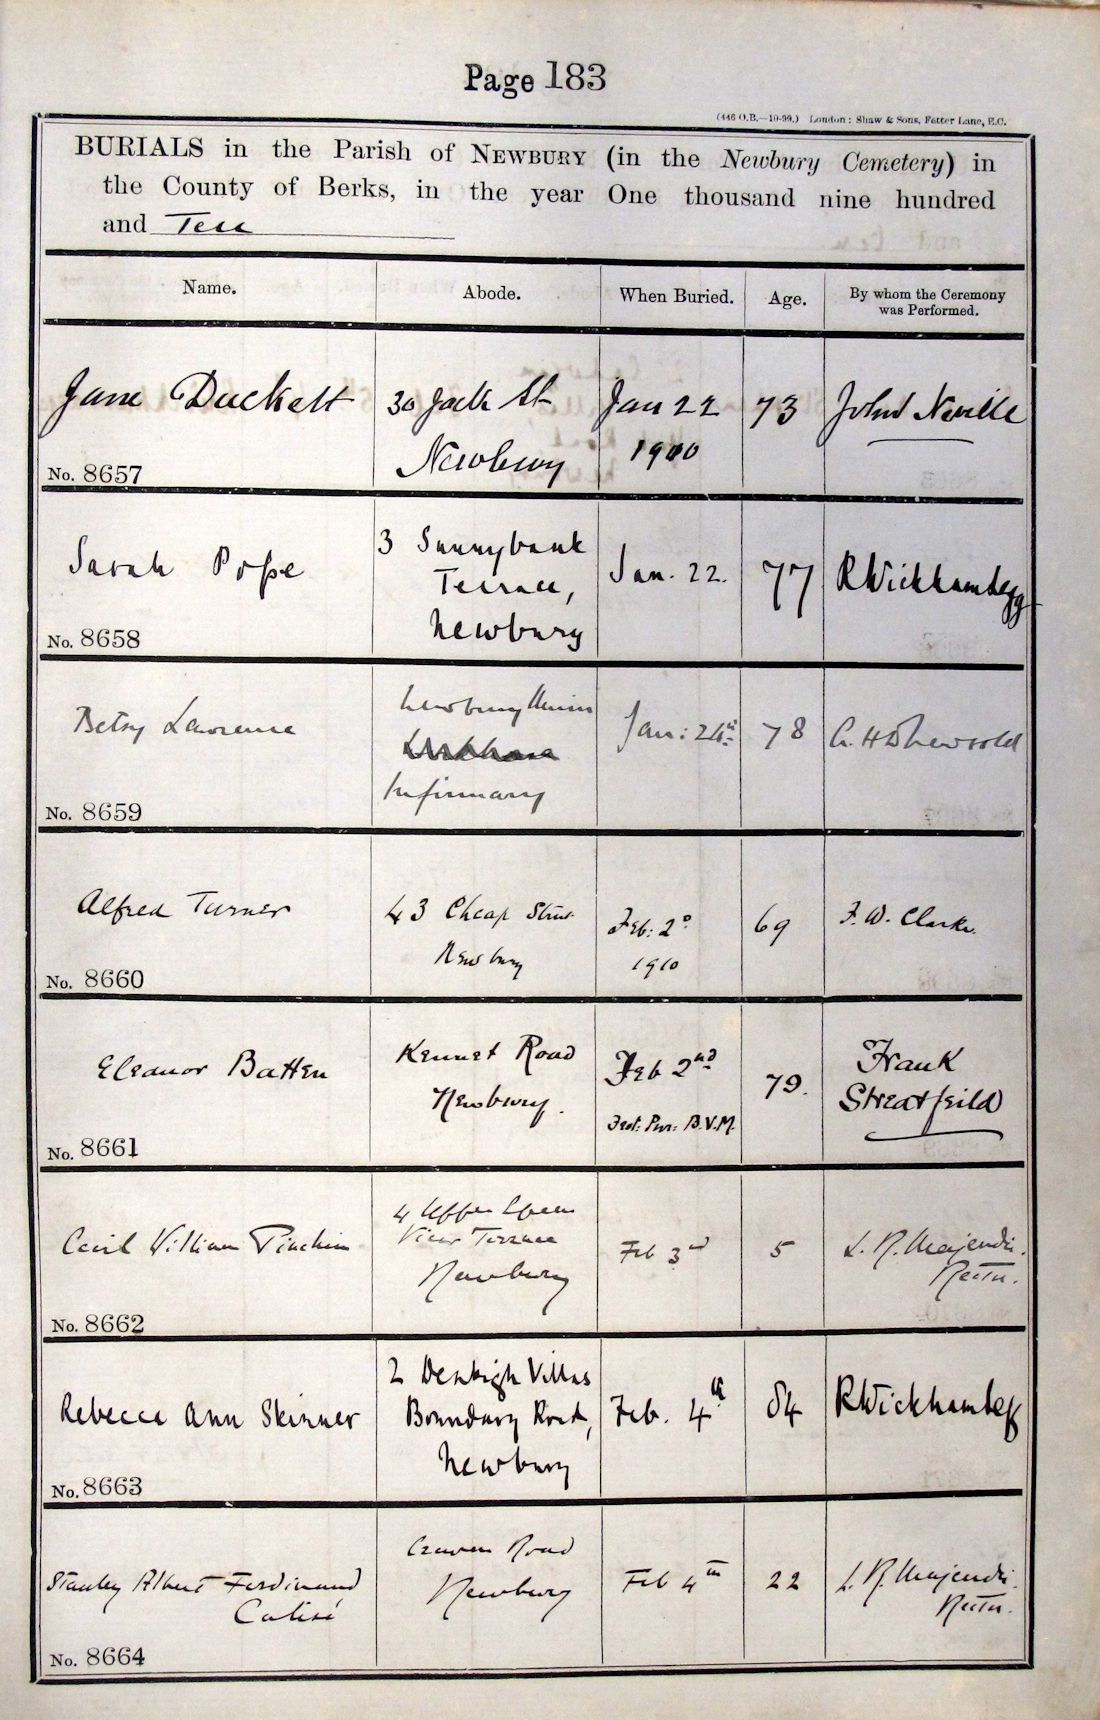 Page 183
(446 O.B.—10-99.) London: Shaw & Sons, Fetter Lane, E.C.
BURIALS in the Parish of NEWBURY (in the Newbury Cemetery) in
the County of Berks, in the year One thousand nine hundred
and Ten
Name. Abode. When Buried. Age. By whom the Ceremony
was Performed.
Jane Duckett 30 Jack St Jan 22 73 John Neville
Newbury 1910
No. 8657
Sarah Pope 3 Sunnybank Jan. 22. 77 R Wickham Legg
Terrace,
Newbury
No. 8658
Betsy Lawrence Newbury Union Jan: 24th 78
Infirmary
No. 8659
Alfred Turner 43 Cheap Street Feb: 2º 69 F. W. Clarke.
Newbury 1910
No. 8660
Eleanor Batten Kennet Road Feb 2nd 79. Frank
Newbury. Fest: Pur: B.V.M. Streatfeild
No. 8661
Cecil William Pinchin 4 Upper Speen Feb 3rd 5 L. R. Majendie.
View Terrace Rector.
Newbury
No. 8662
Rebecca Ann Skinner 2 Denbigh Villas Feb. 4th 84 R Wickham Legg
Boundary Road,
Newbury
No. 8663
Stanley Albert Ferdinand Craven Road Feb 4th 22 L. R. Majendie.
Newbury Rector.
No. 8664